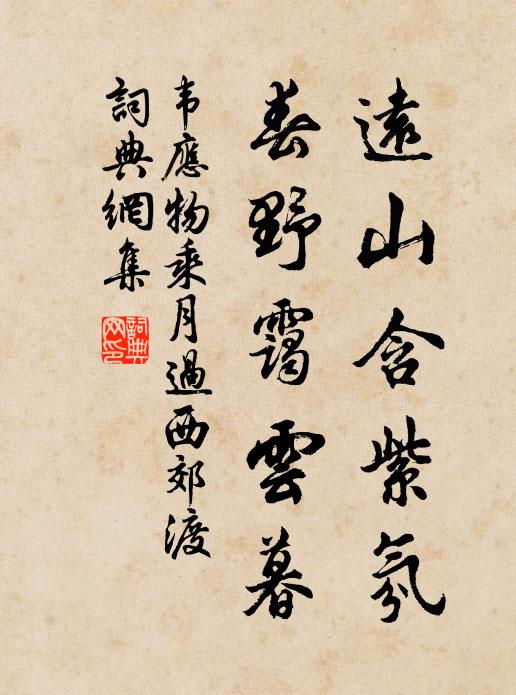 遠山含紫氛
春野靄雲暮
韦應物乘月過西郊渡
詞典網集
詞典網印